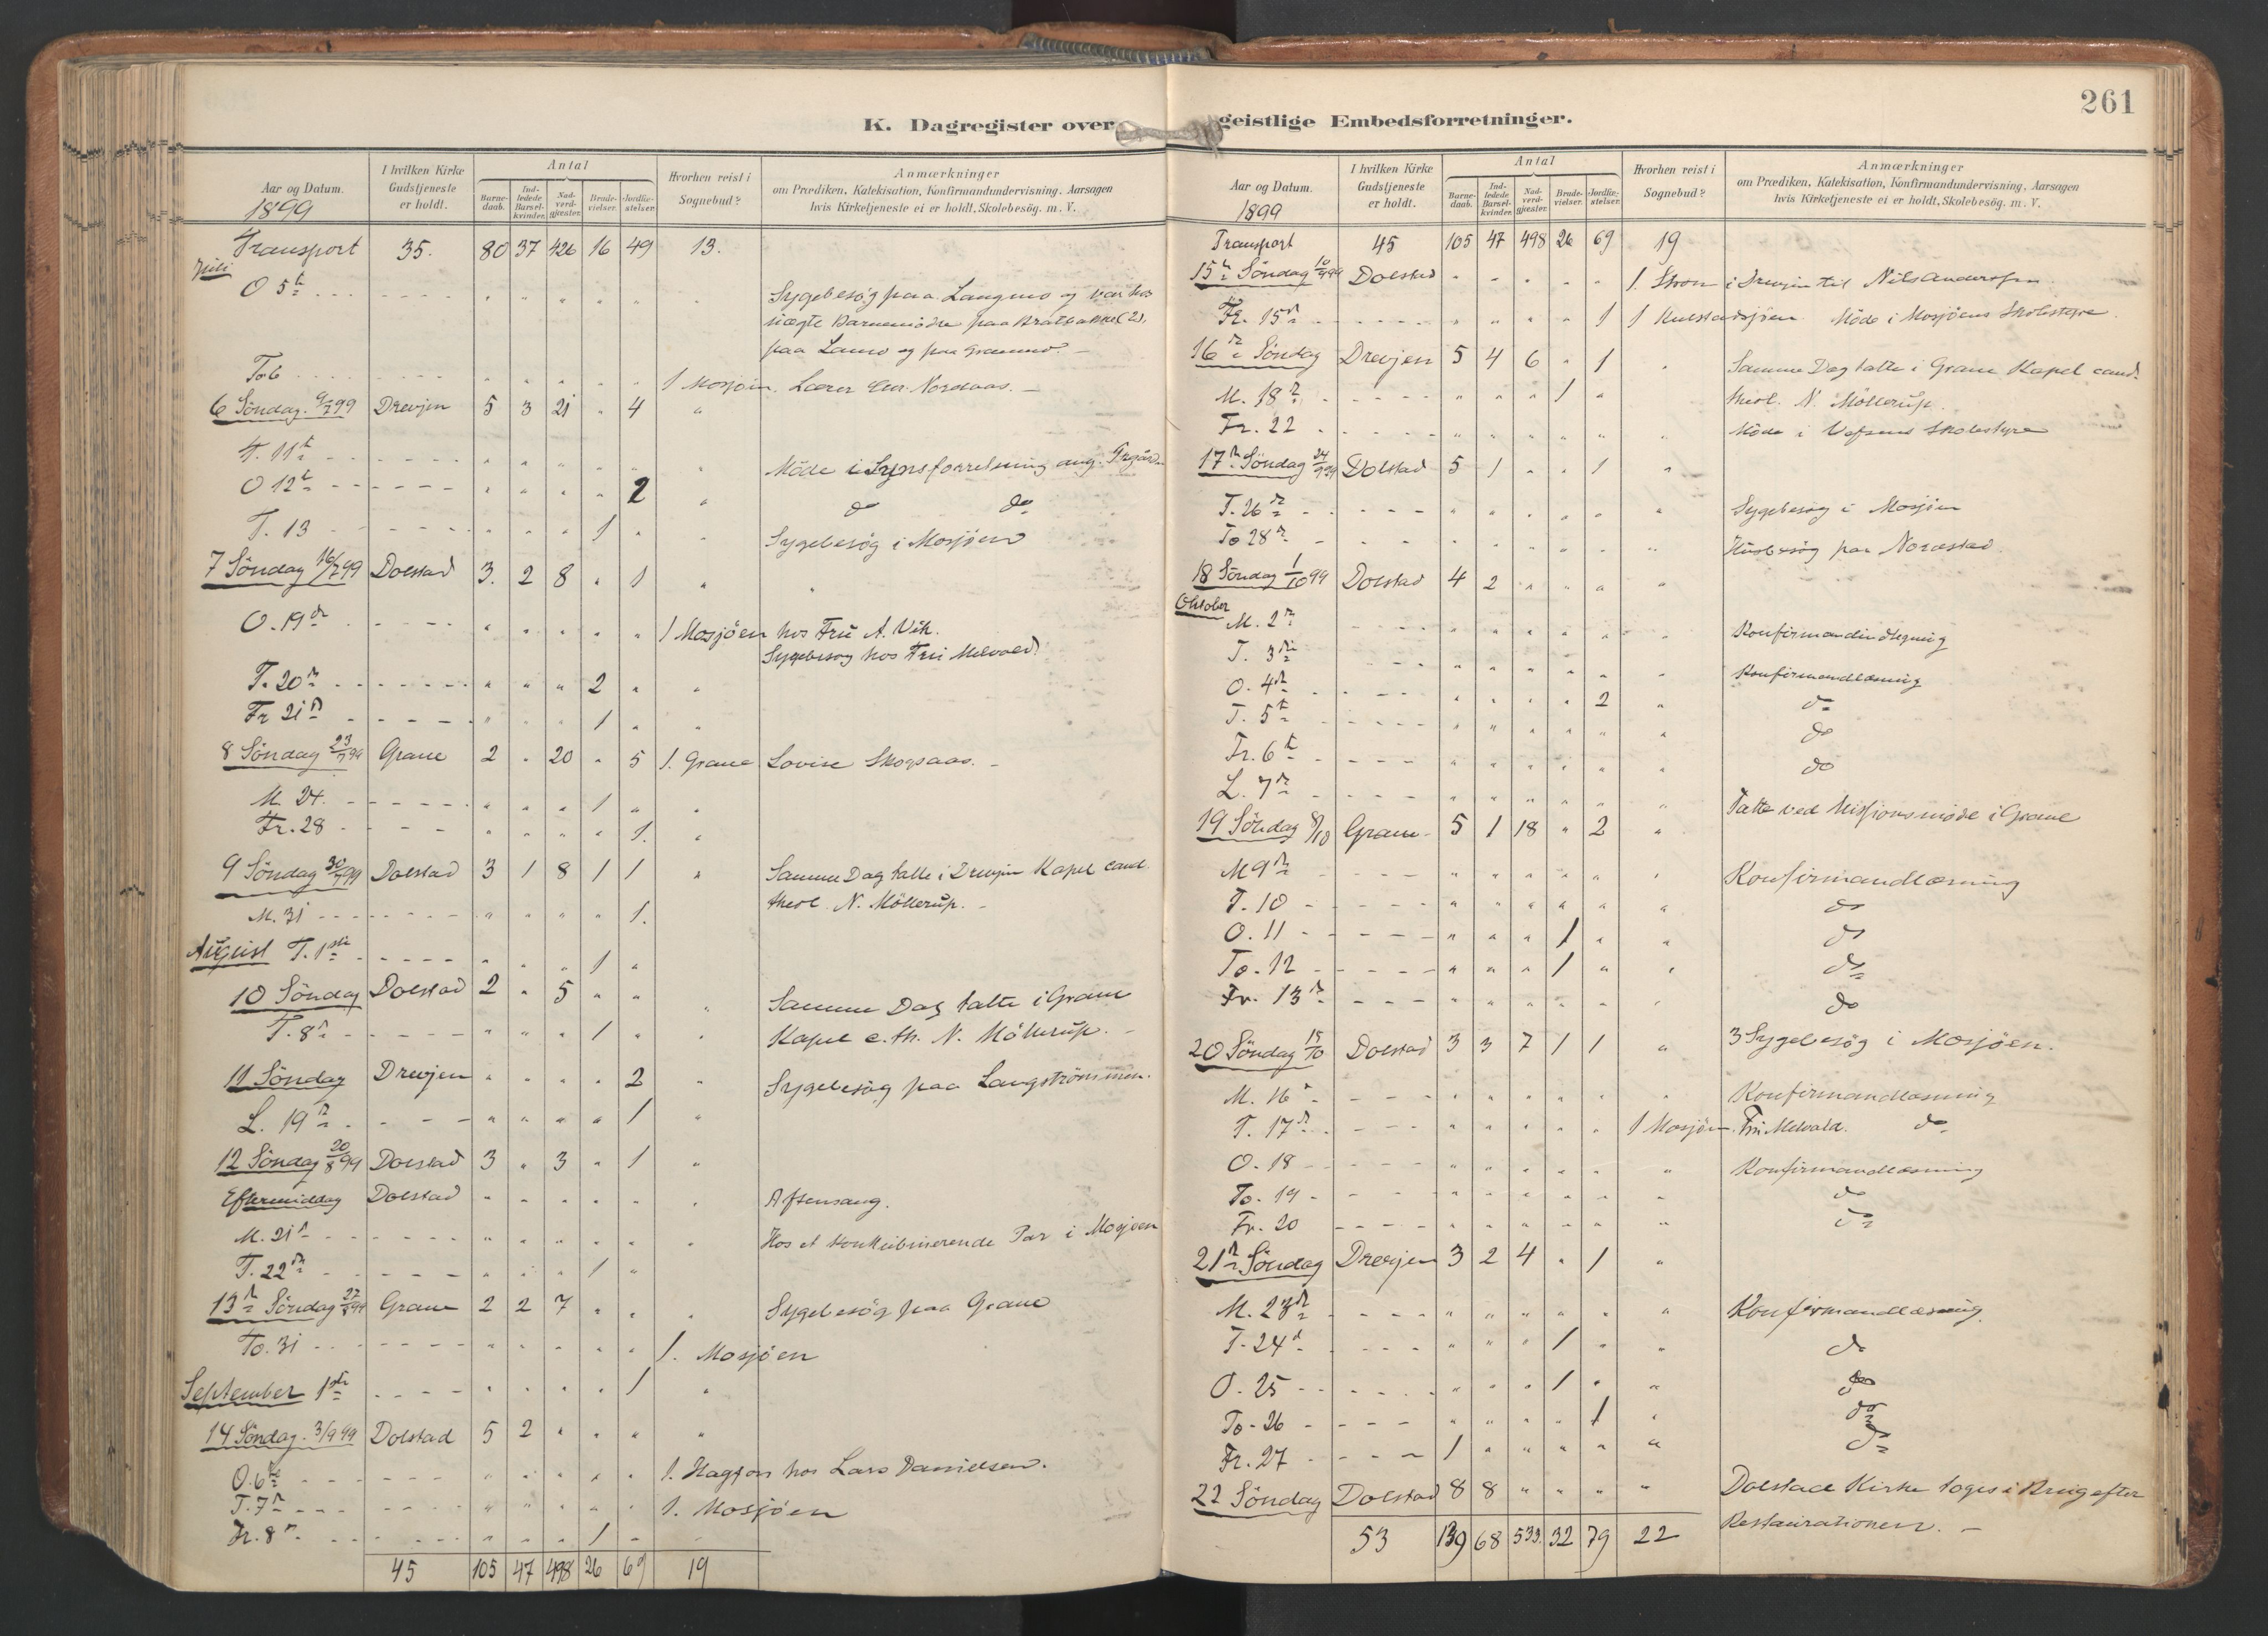 261
K. Dagregister over geistlige Embedsforretninger.
Aar og Datum. 1899 | I hvilken Kirke Gudstjeneste er holdt. | Antal | Barnedaab. | Indledede Barselkvinder. | Nadverdgjæster. | Brudevielser. | Jordfæstelser. | Hvorhen reist i Sognebud? | Anmærkninger om Prædiken, Katekisation, Konfirmandundervisning, Aarsagen hvis Kirketjeneste ei er holdt, Skolebesøg. m. V.
Transport 35. 80 37 426 16 49 13.
Juli
O 5te Sygebesøg paa Langmo og var hos
nægte Barnemødre paa Bratbakke (2),
paa Lamo og paa
To 6 1 Mosjøen. Lærer Chr. Nordaas. –
6 Söndag 9/7 99 Drevjen 5 3 21 " 4 "
T. 11te
Möde i Synsforretning ang.
O 12te 2 do do
T. 13 1 Sygebesög i Mosjöen
7 Söndag 16/7 99 Dolstad 3. 2 8 " 1 "
O. 19de 1 Mosjöen hos Frü A. Vik.
Sygebesøg hos Frü Melvold.
T. 20de 2
Fr 21de 1
8 Söndag 23/7 99 Grane 2 " 20 " 5 1. Grane Lovise Skogsaas. –
M. 24. 1
Fr. 28 1.
9 Söndag 30/7 99 Dolstad 3 1 8 1 1 " Samme Dag talte i Drevjen Kapel cand.
theol. N. Möllerüp. –
M. 31 1.
August T. 1ste 1
10 Söndag Dolstad 2 " 5 " " Samme Dag talte i Grane
T. 8de 1 Kapel c. th. N. Möllerüp. –
11 Söndag Drevjen " " " " 2 " Sygebesög paa Langströmmen.
L. 19de 1
12 Söndag 20/8 99 Dolstad 3 " 3 " 1 "
Eftermiddag Dolstad Aftensang.
M. 21de Hos et konkubinerende Par i Mosjøen
T. 22de 1
13de Söndag 27/8 99 Grane 2 2 7 " " " Sygebesög paa Grane
To. 31 1. Mosjöen
September 1ste 1
14 Söndag. 3/9 99 Dolstad 5 2 " " " "
O. 6te 1. Hagfors hos Lars Danielsen.
T. 7de 1. Mosjöen
Fr. 8de 1
45 105 47 498 26 69 19
Aar og Datum. 1899 | I hvilken Kirke Gudstjeneste er holdt. | Antal | Barnedaab. | Indledede Barselkvinder. | Nadverdgjæster. | Brudevielser. | Jordfæstelser. | Hvorhen reist i Sognebud? | Anmærkninger om Prædiken, Katekisation, Konfirmandundervisning, Aarsagen hvis Kirketjeneste ei er holdt, Skolebesøg. m. V.
Transport 45 105 47 498 26 69 19
15de Söndag 10/9 99 Dolstad 1. Strom i Drevjen til Nils Andersen.
Fr. 15de 1 1 Kulstadsjöen Möde i Mosjöens Skolestyre.
16de Söndag Drevjen 5 4 6 " 1 " Samme Dag talte i Grane Kapel cand.
M. 18de 1 theol. N. Möllerüp.
Fr. 22 Möde i Vefsens Skolestyre
17de Söndag 24/9 99 Dolstad 5 1 " " 1 "
T. 26de Sygebesøg i Mosjöen
To 28de Husbesøg paa Nordstad.
18 Söndag 1/10 99 Dolstad 4 2 " " " "
Oktober
M. 2de Konfirmandindtegning
T. 3die Konfirmandlæsning
O. 4de 2 do
T. 5te do
Fr. 6te do
L. 7de Talte ved Missionsmöde i Grane
19 Söndag 8/10 Grane 5 1 18 " 2 "
M 9de Konfirmandlæsning
T. 10 do
O. 11 1 do
To. 12 1 do
Fr. 13de do
20 Söndag 15/10 Dolstad 3 3 7 1 1 " 3 Sygebesög i Mosjöen.
M. 16de Konfirmandlæsning
T. 17de 1 Mosjöen. Frü Melvold. do
O. 18 Konfirmandlæsning
To. 19 do
Fr. 20 do
21de Söndag Drevjen 3 2 4 " 1 "
M. 23de Konfirmandlæsning.
T. 24de 1 do
O. 25 1 do
To. 26 1 do
Fr. 27 1 do
22 Söndag Dolstad 8 8 " " " " Dolstad Kirke toges i Brug efter
Restaurationen. –
53 139 68 533 32 79 22